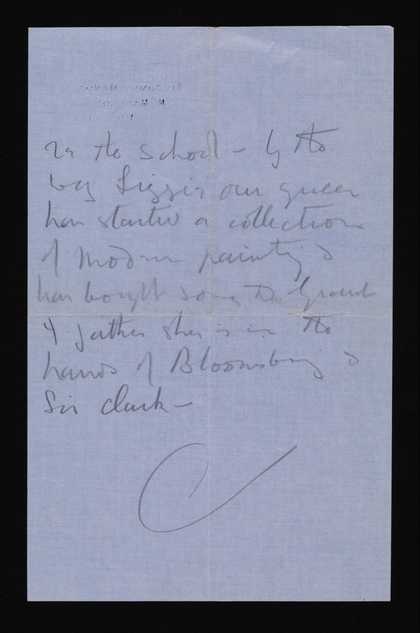 in the school – by the
way Lizzie our queen
has started a collection
of modern painting &
has bought some
I gather she is in the
hands of Bloomsbury &
Sir Clark –
C